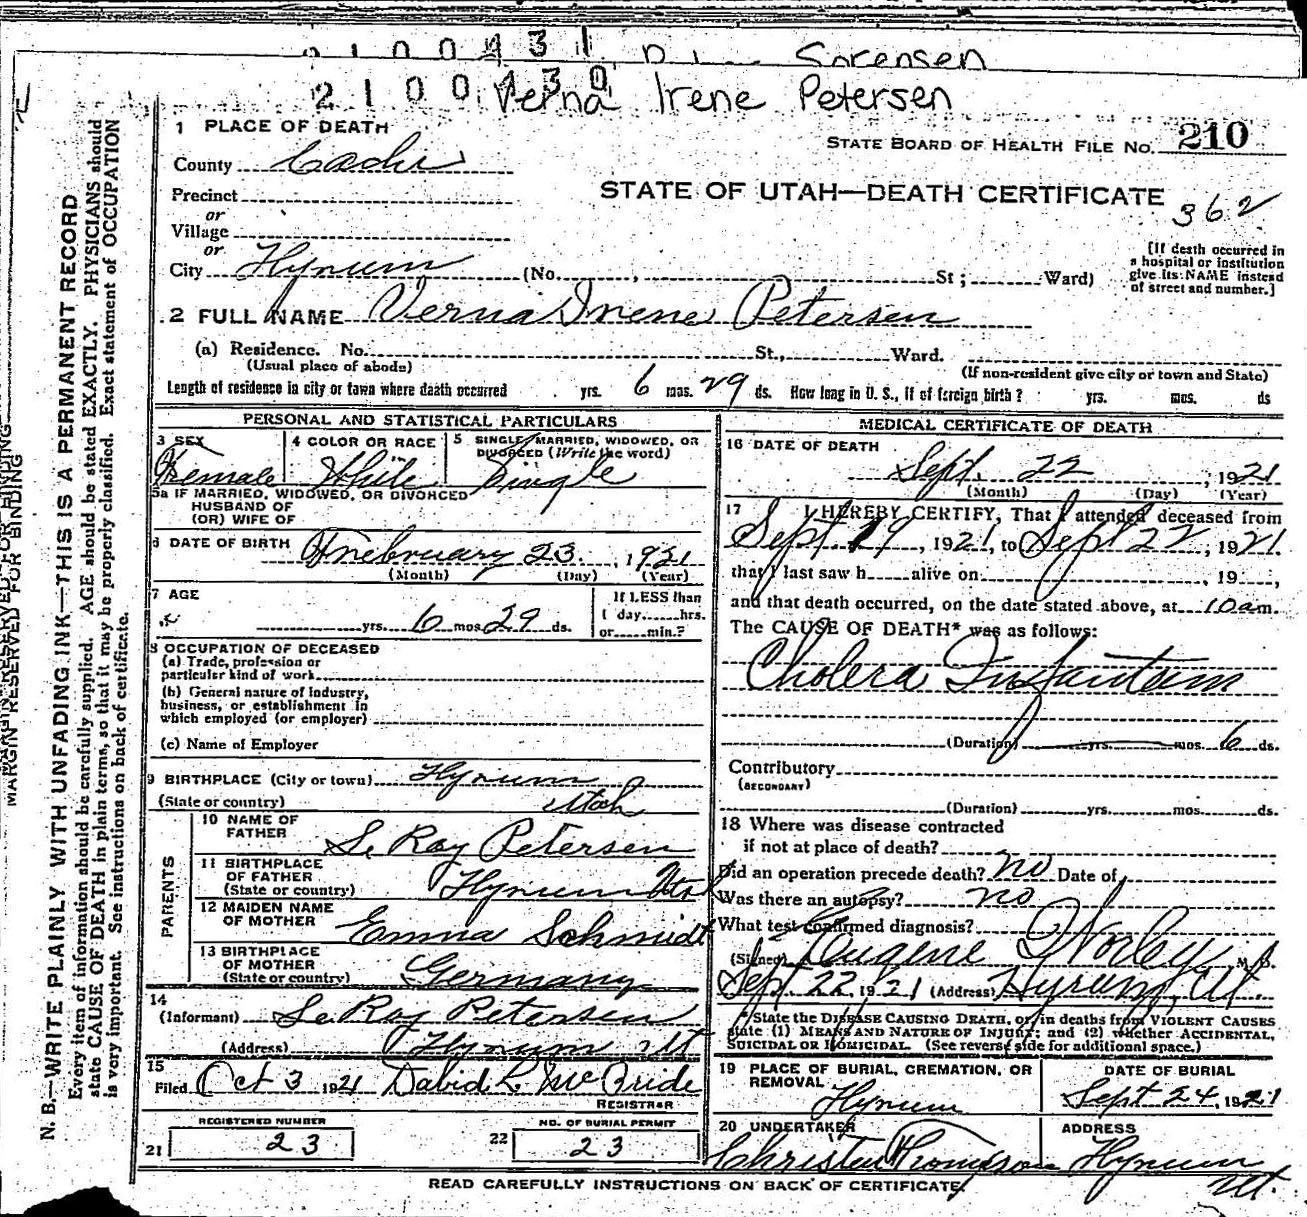 2100431 Sorensen
2100430 Verna Irene Petersen
1 PLACE OF DEATH
STATE BOARD OF HEALTH FILE No. 210
County Cache
STATE OF UTAH—DEATH CERTIFICATE
362
Precinct
or
Village
or
City Hyrum (No. , St ; Ward)
[If death occurred in
a hospital or institution
give its NAME instead
of street and number.]
2 FULL NAME Verna Irene Petersen
(a) Residence. No. St., Ward.
(Usual place of abode) (If non-resident give city or town and State)
Length of residence in city or town where death occurred yrs. 6 mos. 29 ds. How long in U. S., if of foreign birth? yrs. mos. ds
PERSONAL AND STATISTICAL PARTICULARS
3 SEX 4 COLOR OR RACE 5 SINGLE, MARRIED, WIDOWED, OR
DIVORCED (Write the word)
Female White Single
5a IF MARRIED, WIDOWED, OR DIVORCED
HUSBAND OF
(OR) WIFE OF
6 DATE OF BIRTH February 23, 1921
(Month) (Day) (Year)
7 AGE
yrs. 6 mos. 29 ds.
If LESS than
1 day hrs.
or min.?
8 OCCUPATION OF DECEASED
(a) Trade, profession or
particular kind of work
(b) General nature of industry,
business, or establishment in
which employed (or employer)
(c) Name of Employer
9 BIRTHPLACE (City or town) Hyrum
(State or country) Utah
PARENTS
10 NAME OF
FATHER Le Roy Petersen
11 BIRTHPLACE
OF FATHER
(State or country) Hyrum Utah
12 MAIDEN NAME
OF MOTHER Emma Schmidt
13 BIRTHPLACE
OF MOTHER
(State or country) Germany
14
(Informant) Le Roy Petersen
(Address) Hyrum Ut
15
Filed Oct 3 1921 David L McBride
REGISTRAR
REGISTERED NUMBER NO. OF BURIAL PERMIT
21 23 22 23
MEDICAL CERTIFICATE OF DEATH
16 DATE OF DEATH
Sept. 22, 1921
(Month) (Day) (Year)
17 I HEREBY CERTIFY, That I attended deceased from
Sept 19, 1921, to Sept 22, 1921
that I last saw h alive on , 19 ,
and that death occurred, on the date stated above, at 10 am.
The CAUSE OF DEATH* was as follows:
Cholera Infantum
(Duration) yrs. mos. 6 ds.
Contributory
(SECONDARY)
(Duration) yrs. mos. ds.
18 Where was disease contracted
if not at place of death?
Did an operation precede death? no Date of
Was there an autopsy? no
What test confirmed diagnosis?
(Signed) Eugene Worley M. D.
Sept. 22, 1921 (Address) Hyrum, Ut.
*State the DISEASE CAUSING DEATH, or, in deaths from VIOLENT CAUSES
state (1) MEANS AND NATURE OF INJURY; and (2) whether ACCIDENTAL,
SUICIDAL OR HOMICIDAL. (See reverse side for additional space.)
19 PLACE OF BURIAL, CREMATION, OR
REMOVAL
Hyrum
DATE OF BURIAL
Sept 24, 1921
20 UNDERTAKER ADDRESS
Christen Thompson Hyrum
Ut.
READ CAREFULLY INSTRUCTIONS ON BACK OF CERTIFICATE
MARGIN RESERVED FOR BINDING
N. B.—WRITE PLAINLY WITH UNFADING INK—THIS IS A PERMANENT RECORD
Every item of information should be carefully supplied. AGE should be stated EXACTLY. PHYSICIANS should
state CAUSE OF DEATH in plain terms, so that it may be properly classified. Exact statement of OCCUPATION
is very important. See instructions on back of certificate.